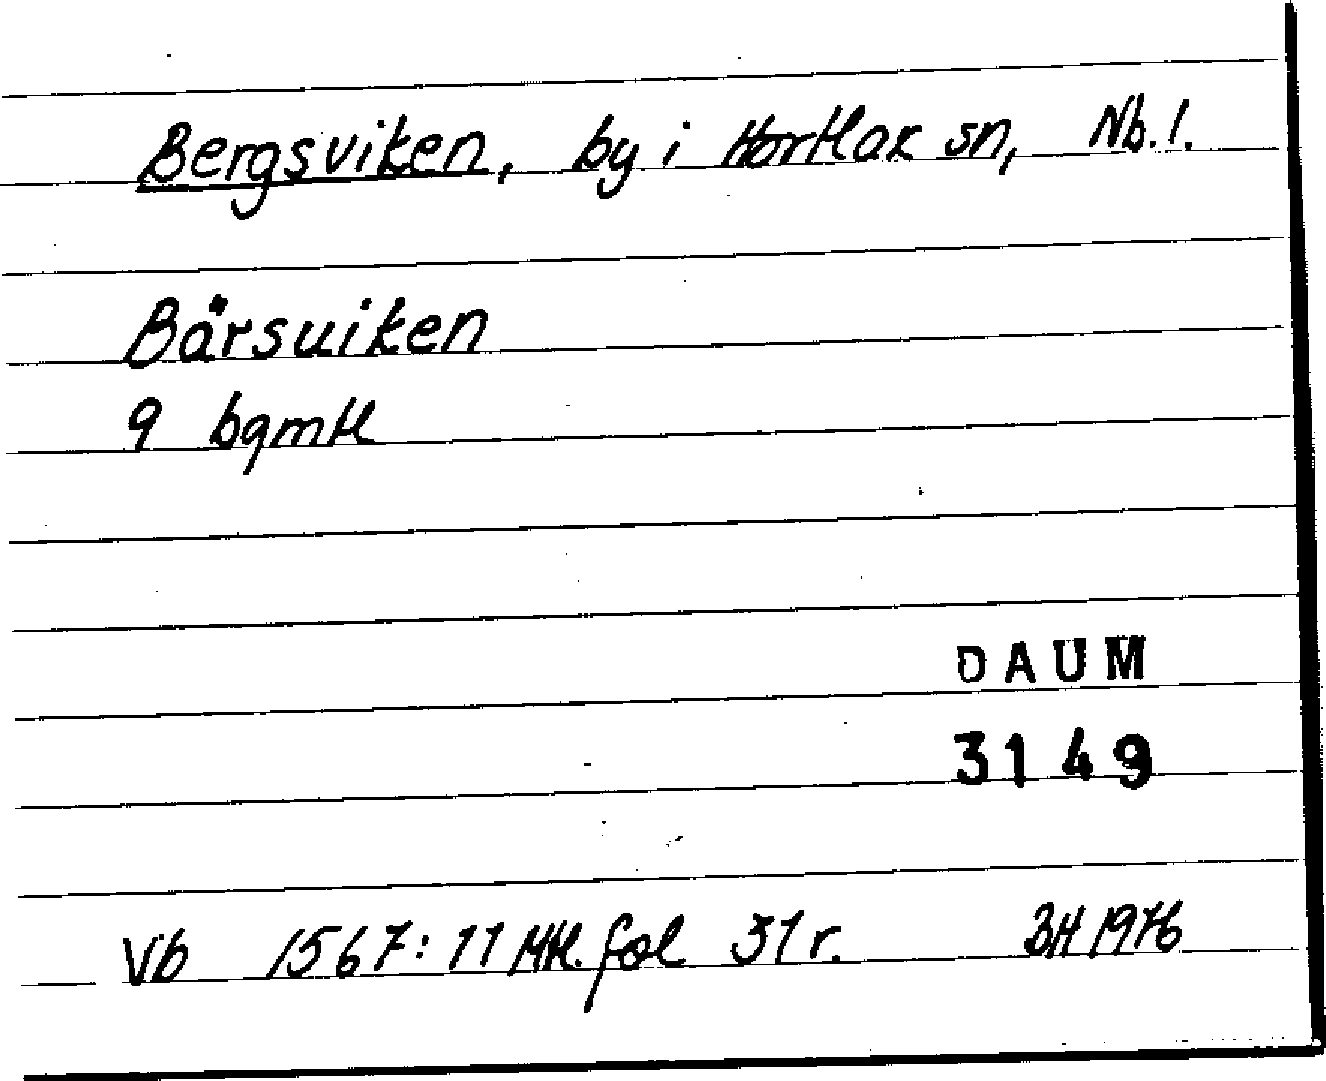 Bergsviken, by i Hortlax sn, Nb. l.
Bärsuiken
9 bgmtl
DAUM
3149
Vb 1567: 11 Mtl. fol 31 r. BH 1976